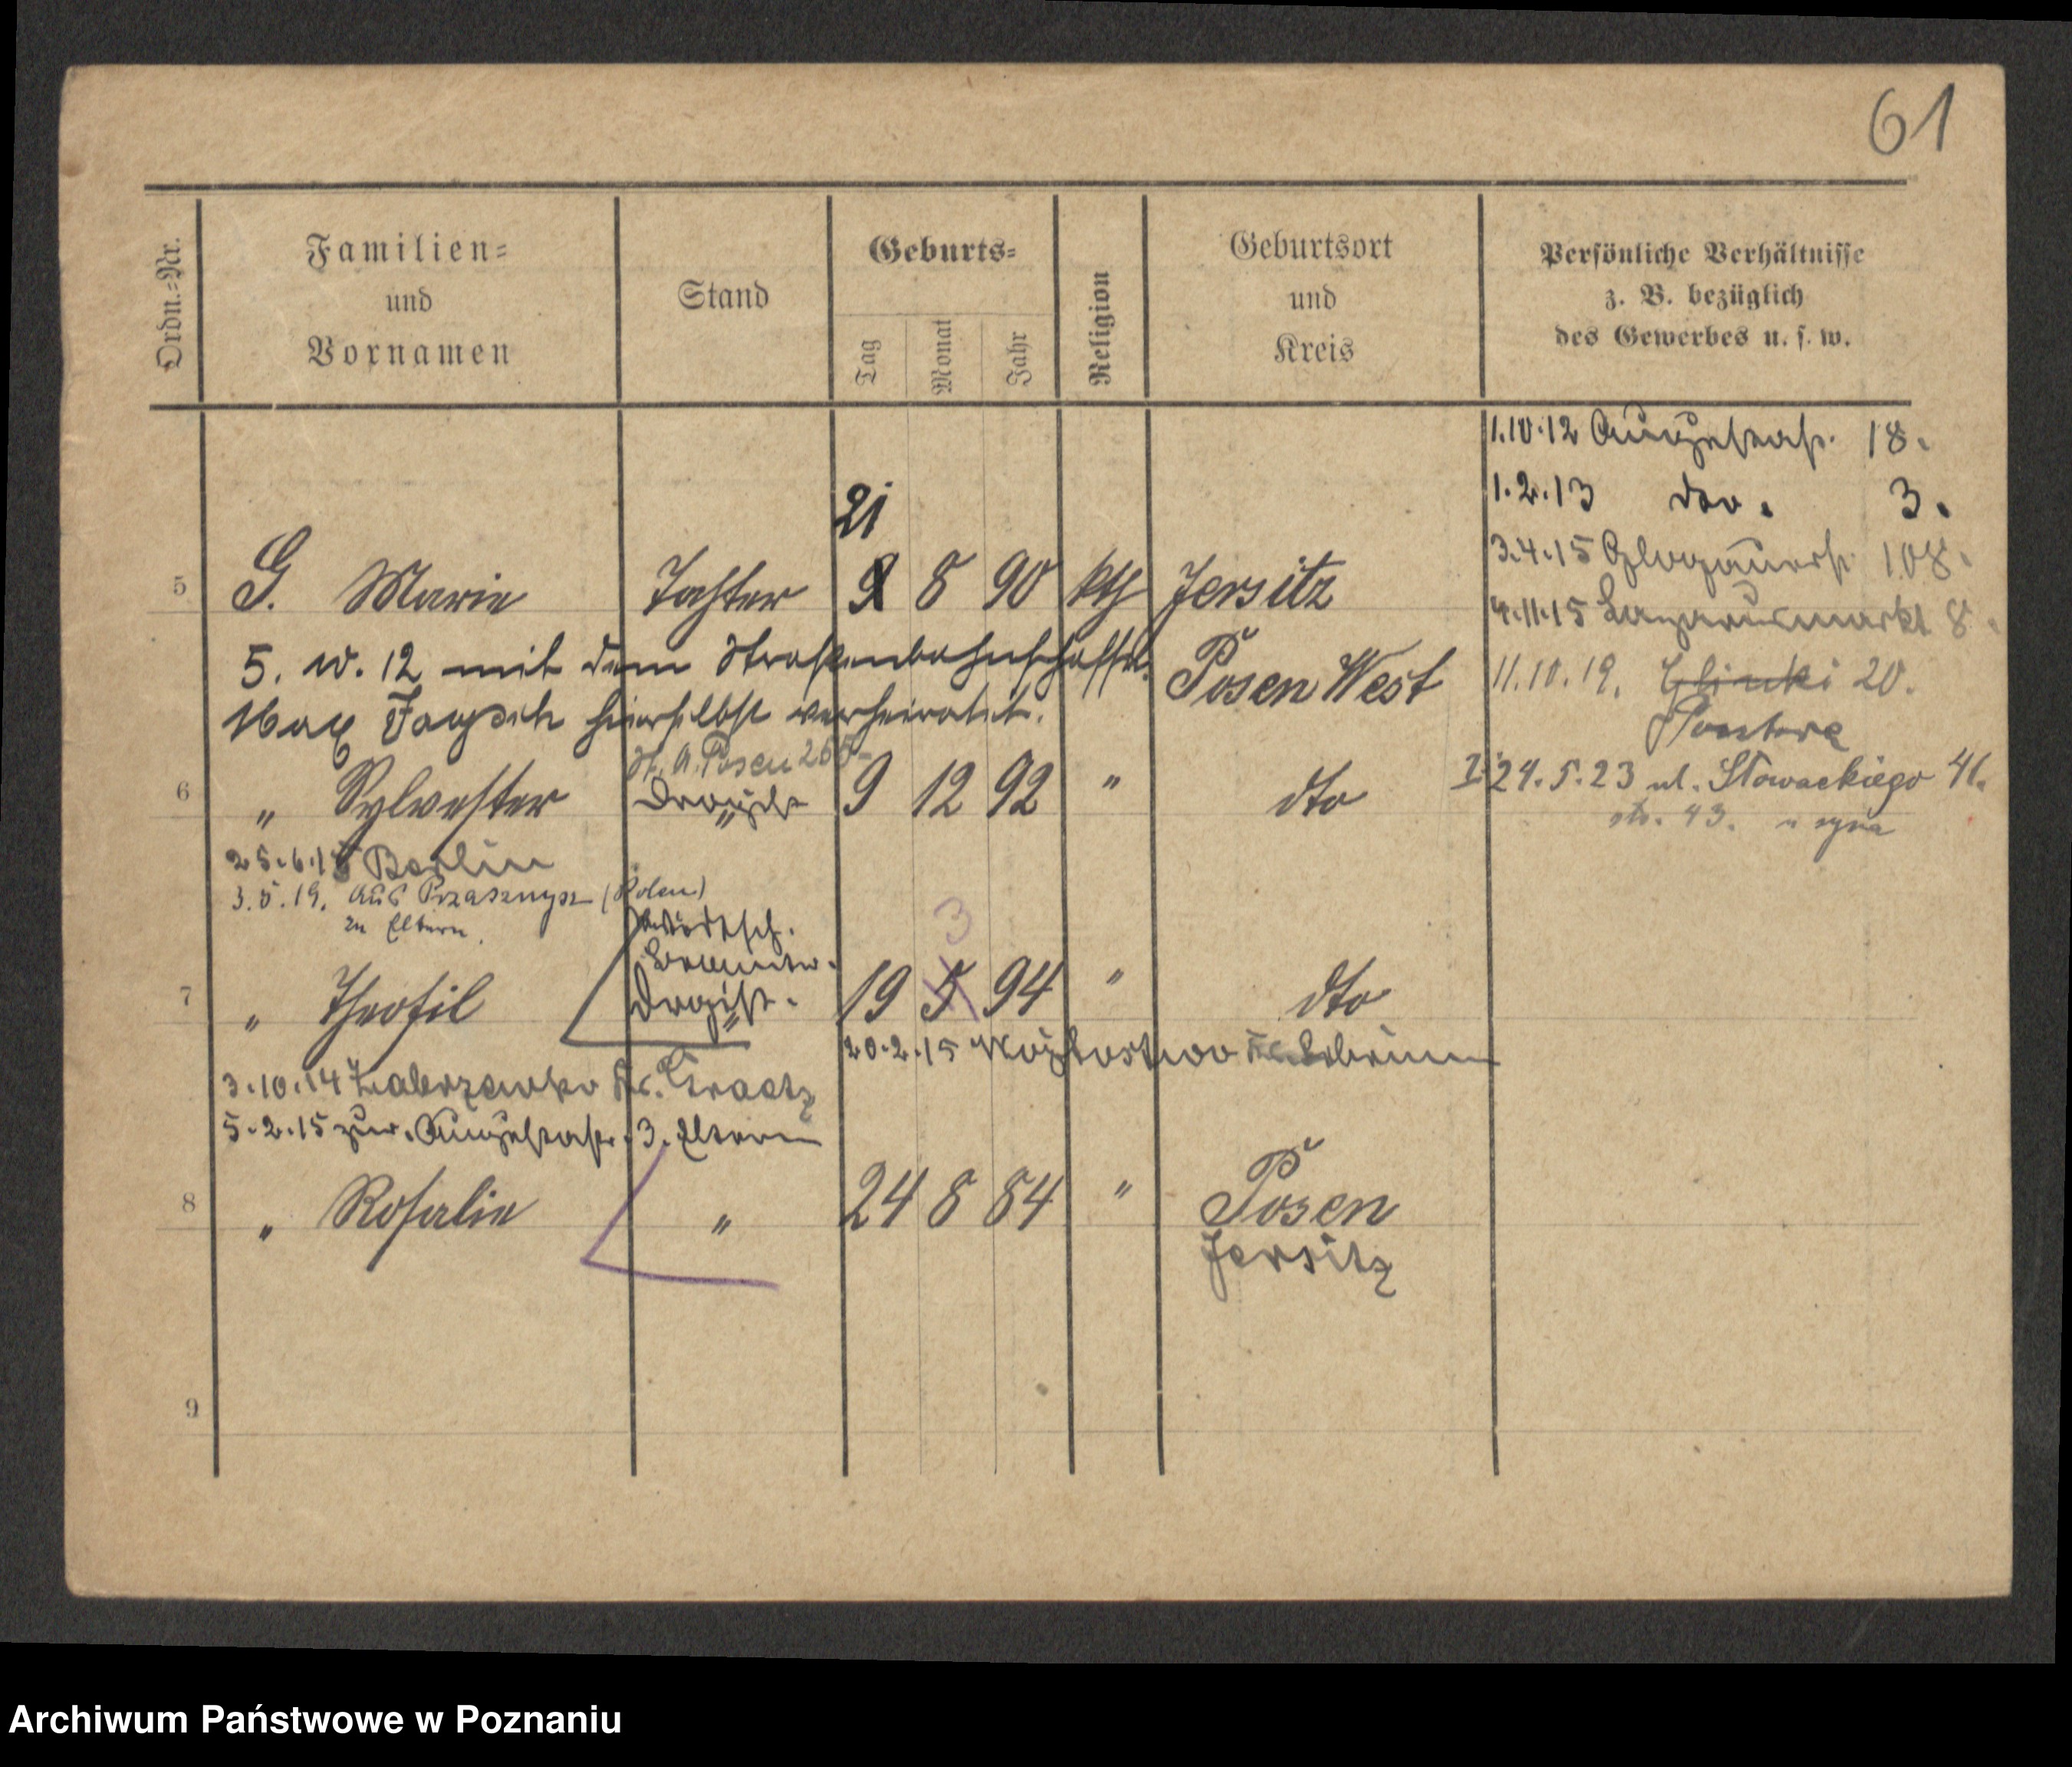 61
Ordn.-Nr.
Familien-
und
Vornamen
Stand
Geburts-
Tag
Monat
Jahr
Religion
Geburtsort
und
Kreis
Persönliche Verhältnisse
z. B. bezüglich
des Gewerbes u. s. w.
1.10.12 Augustastr. 18.
1.2.13 dto. 3.
3.4.15 Glogauerstr. 108.
4.11.15 Lazarusmarkt 8.
11.10.19. Glinki 20.
I 24.5.23 ul. Słowackiego 41.
str. 43. u syna
21
5 G. Marie Tochter 9 8 90 kth Jersitz
Posen West
5. 10. 12 mit dem Straßenbahnschaffn.
Max hierselbst verheiratet.
St. A. Posen
6 " Sylvester Drogist " 9 12 92 " dto
25.6.15 Berlin
3.5.19. aus Przasznysz (Polen)
zu Eltern.
Wirtsch.
Beamter.
3
7 " Theofil Drogist. " 19 5 94 " dto
20.2.15
3.10.14 Zaborowko Kr. Graetz
5.2.15 zur. Augustastr. 3. Eltern
8 " Rosalie " 24 8 84 " Posen
Jersitz
9
Archiwum Państwowe w Poznaniu